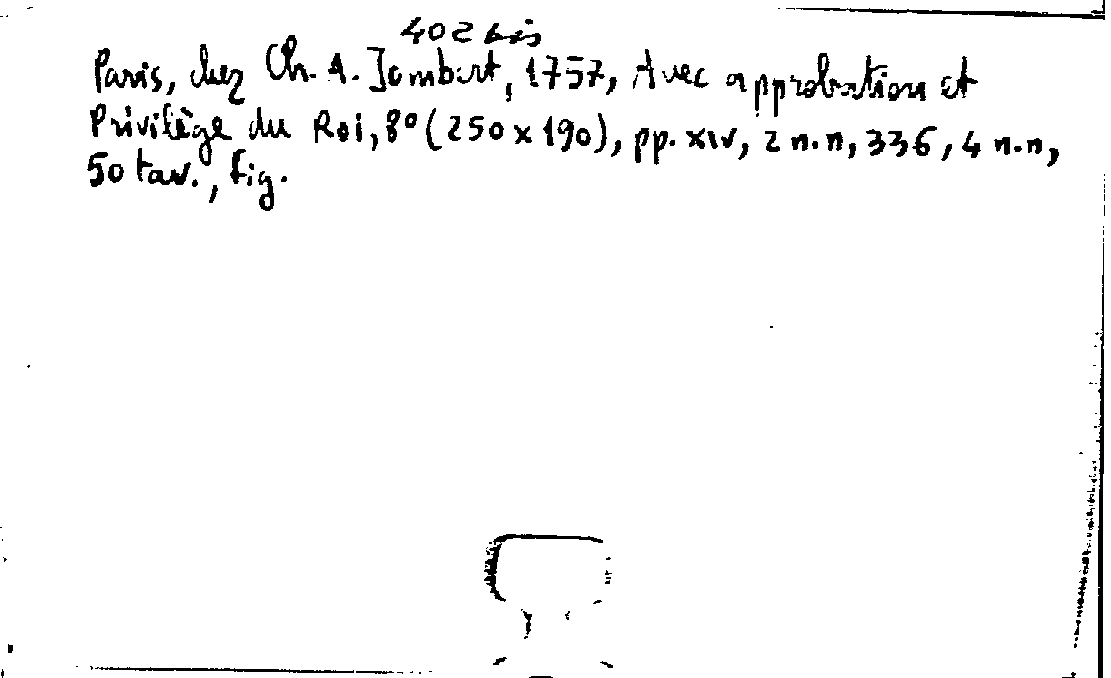 402 bis
Paris, chez Ch. A. Jombert, 1757, Avec approbation et
Privilège du Roi, 8° (250 x 190), pp. XIV, 2 n.n, 336, 4 n.n,
50 tav., fig.